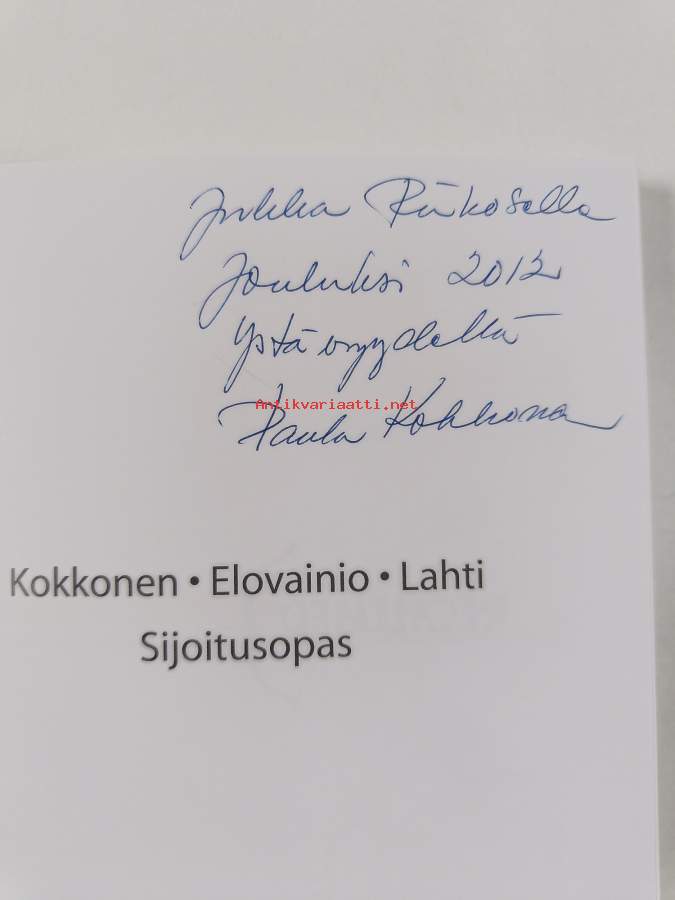 Jukka Riikosella
Jouluksi 2012
Ystävyydellä
Antikvariaatti.net
Paula Kokkonen
Kokkonen • Elovainio • Lahti
Sijoitusopas